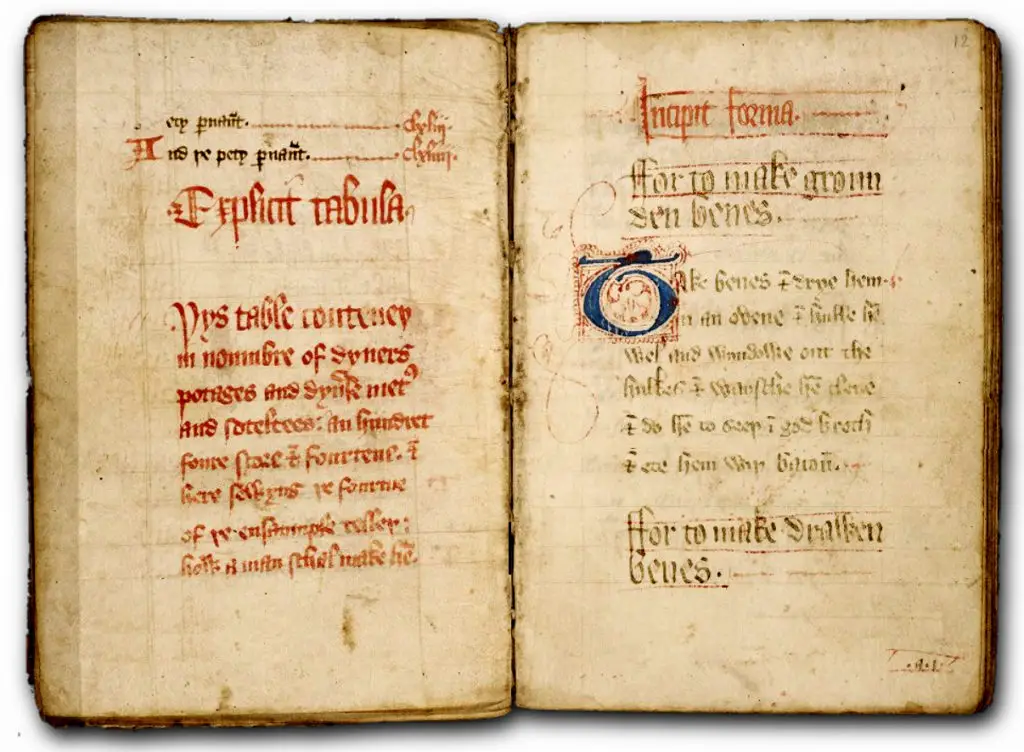 ety ꝑnaūt. Cxliij.
And ye pety ꝑnaūt. Cxliiij.
Explicit tabula
Þys table conteney
in noumbre of dyners
potages and dyūse metꝰ
and soteltees: an hundret
foure score ⁊ fourtene. ⁊
here sewyng ye fourme
of ye ensaumple
how a man schal make hē.
12
Incipit forma.
ffor to make groun
den benes.
Take benes ⁊ drye hem
in an ovene ⁊ hulle hē
wel and wyndowe out the
hulkes ⁊ waysche hē clene
⁊ do hē to seeþ ī god broth
⁊ ete hem wiþ bacoū.
ffor to make drawen
benes.